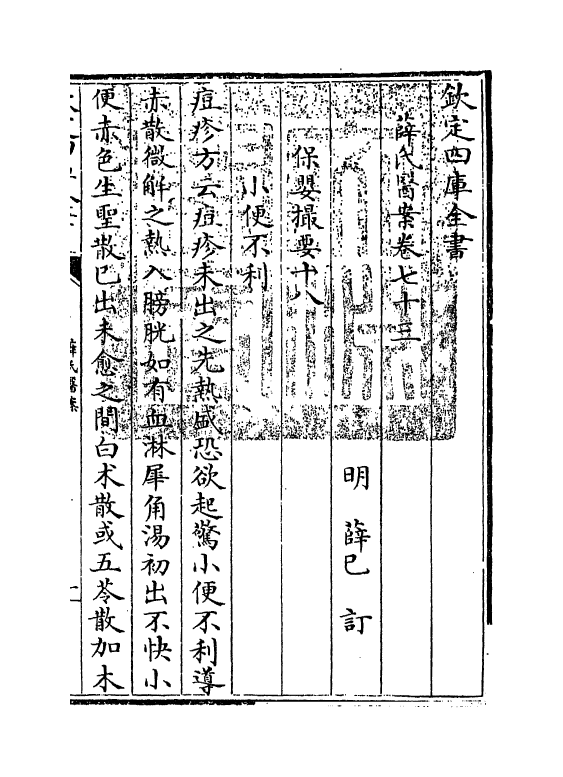 欽定四庫全書
薛氏醫案卷七十三
明 薛己 訂
保嬰撮要十八
小便不利
痘疹方云痘疹未出之先熱盛恐欲起驚小便不利導
赤散微解之熱入膀胱如有血淋犀角湯初出不快小
便赤色生聖散已出未愈之間白术散或五苓散加木
薛氏醫案